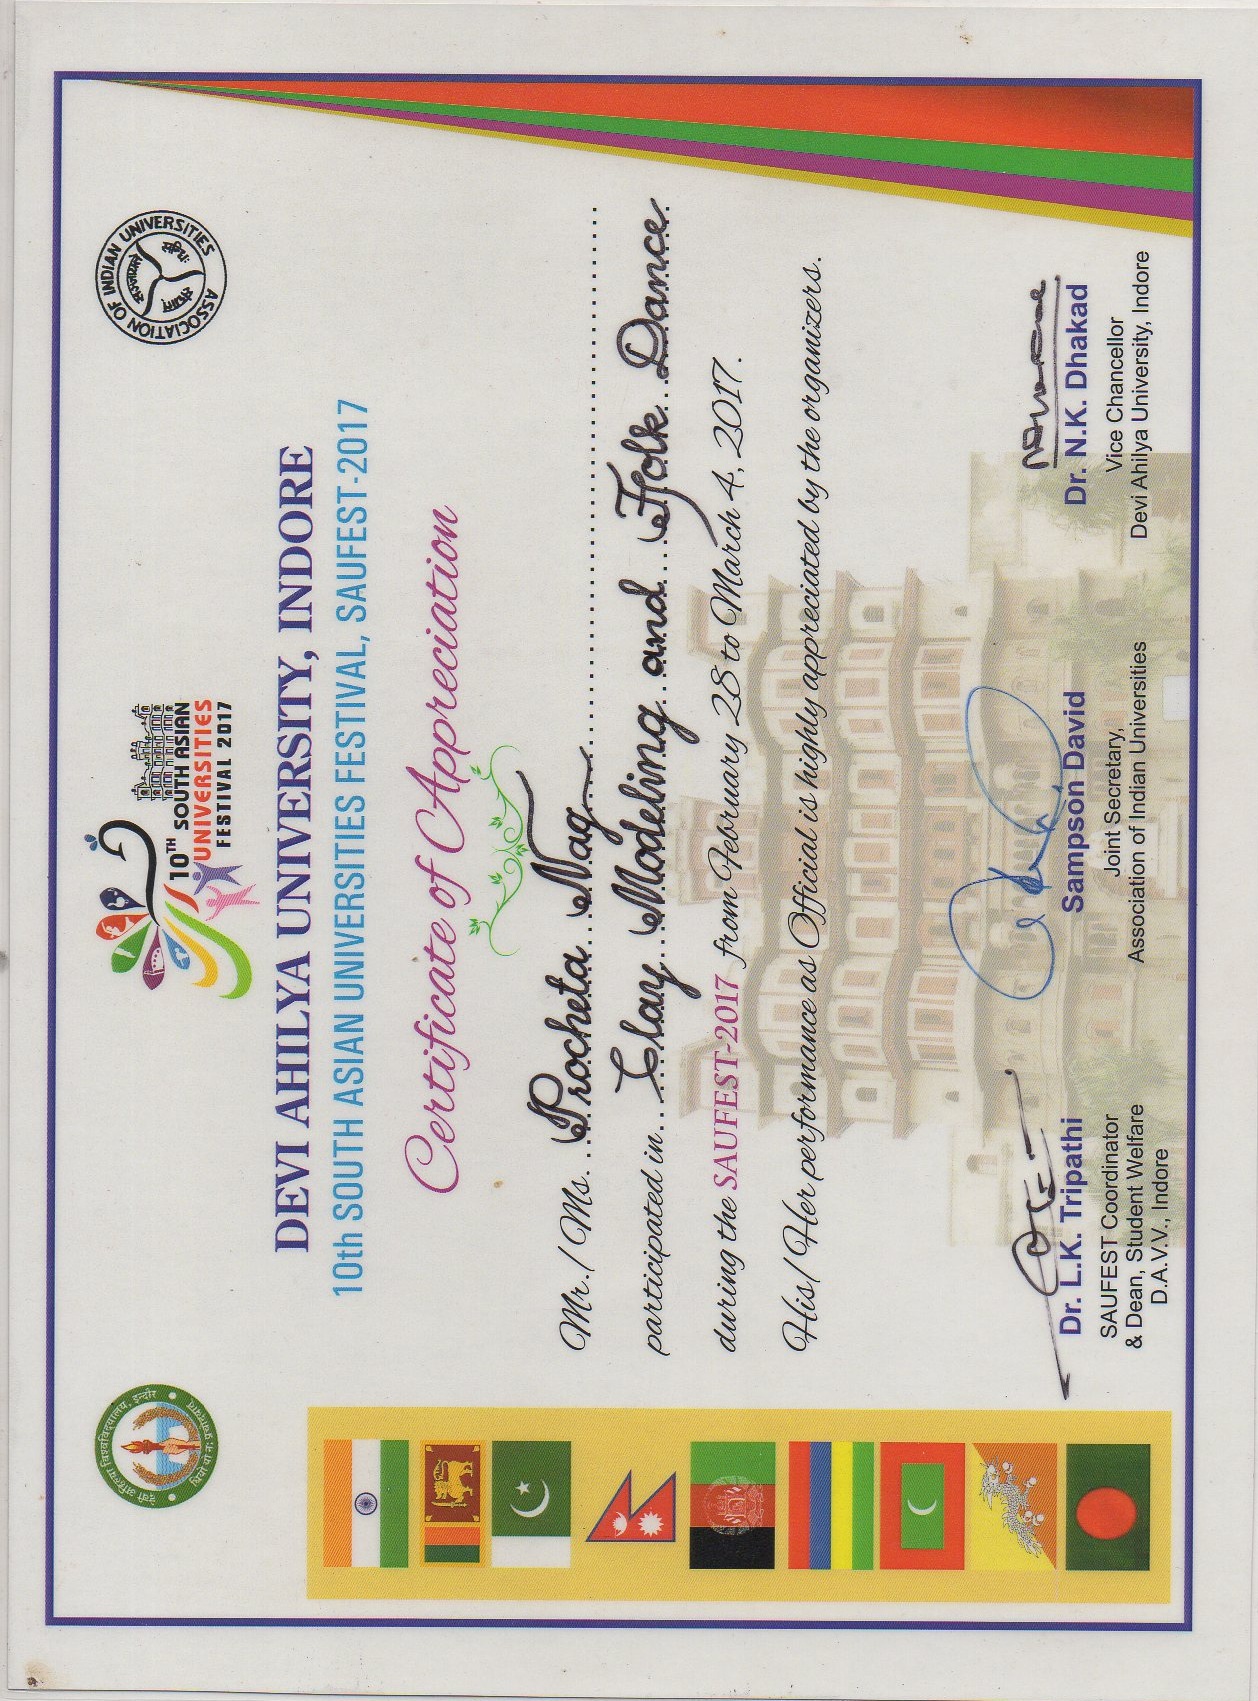 देवी अहिल्या विश्वविद्यालय, इन्दौर
ASSOCIATION OF INDIAN UNIVERSITIES
10TH SOUTH ASIAN
UNIVERSITIES
FESTIVAL 2017
DEVI AHILYA UNIVERSITY, INDORE
10th SOUTH ASIAN UNIVERSITIES FESTIVAL, SAUFEST-2017
Certificate of Appreciation
Mr./Ms. Procheta Nag
participated in Clay Modeling and Folk Dance
during the SAUFEST-2017 from February 28 to March 4, 2017.
His/Her performance as Official is highly appreciated by the organizers.
Dr. L.K. Tripathi
SAUFEST Coordinator
& Dean, Student Welfare
D.A.V.V., Indore
Sampson David
Joint Secretary,
Association of Indian Universities
Dr. N.K. Dhakad
Vice Chancellor
Devi Ahilya University, Indore